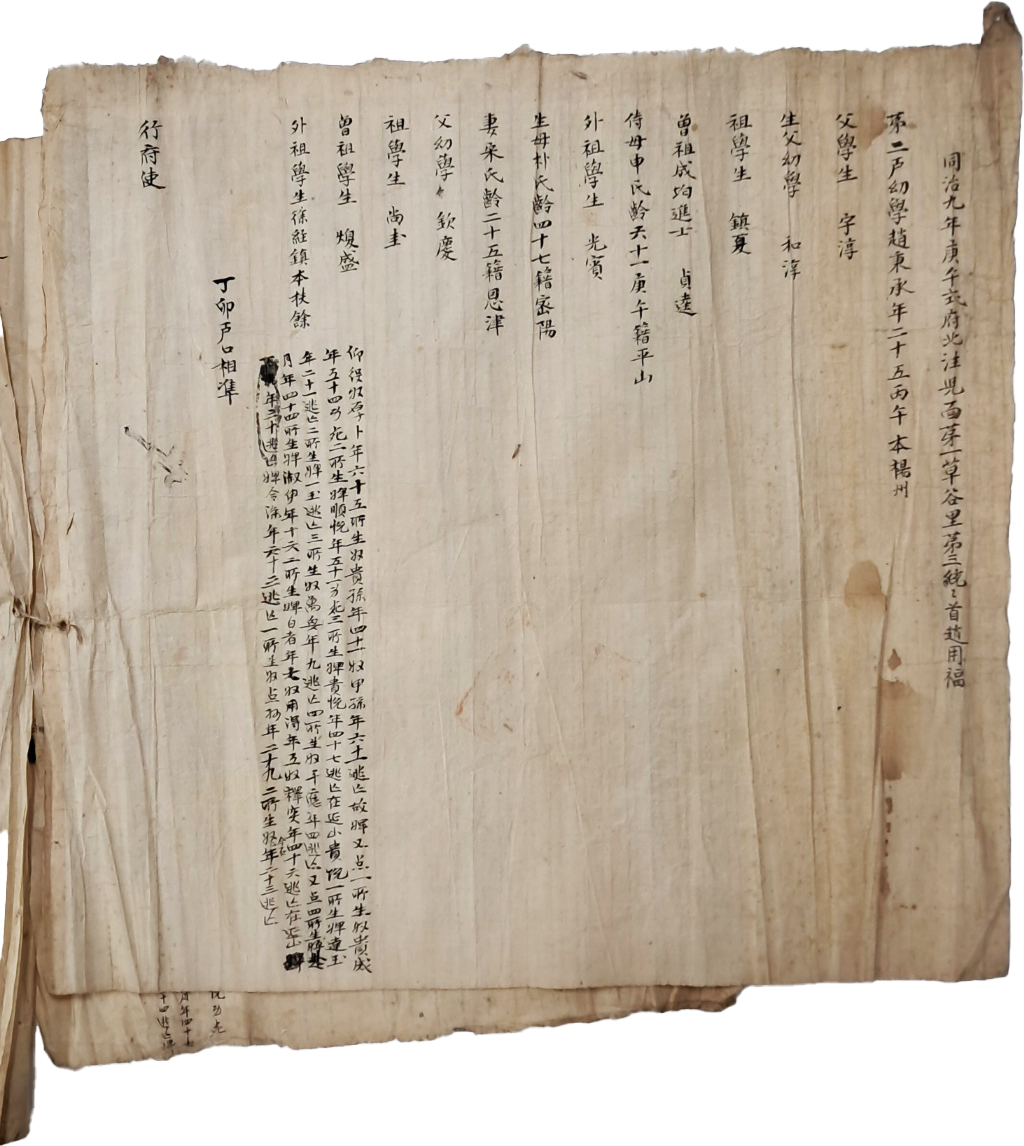 同治九年庚午式府北注兒面苐一草谷里第三統〻首趙用福
苐二戶幼學趙東承年二十五丙午本楊州
父學生 字淳
生父幼學 和淳
祖學生 鎮夏
曾祖成均進士 貞達
侍母申氏齡六十一庚午籍平山
外祖學生 光賓
生母朴氏齡四十七籍密陽
妻宋氏齡二十五籍恩津
父幼學 欽慶
祖學生 尚圭
曾祖學生 煥盛
外祖學生徐經鎮本扶餘
仰役奴 卜年六十五所生奴貴孫年四十一奴甲孫年六十一逃亡故婢又点一所生奴貴成
年五十四 二所生婢順悅年五十一 三所生婢貴悅年四十七逃亡在延山貴悅一所生婢連玉
年二十一逃亡二所生婢一玉逃亡三所生奴萬 年九逃亡四所生奴千應年四逃亡又点四所生
月年四十四所生婢淑伊年十六二所生婢日者年七奴用 年五奴釋奕年四十六逃亡在延山
年三十逃亡婢令深年六十三逃亡一所生奴点 年二十九二所生奴 年二十三逃亡
丁卯戶口相準
行府使
悅 故
月年四十七
十四逃亡婢